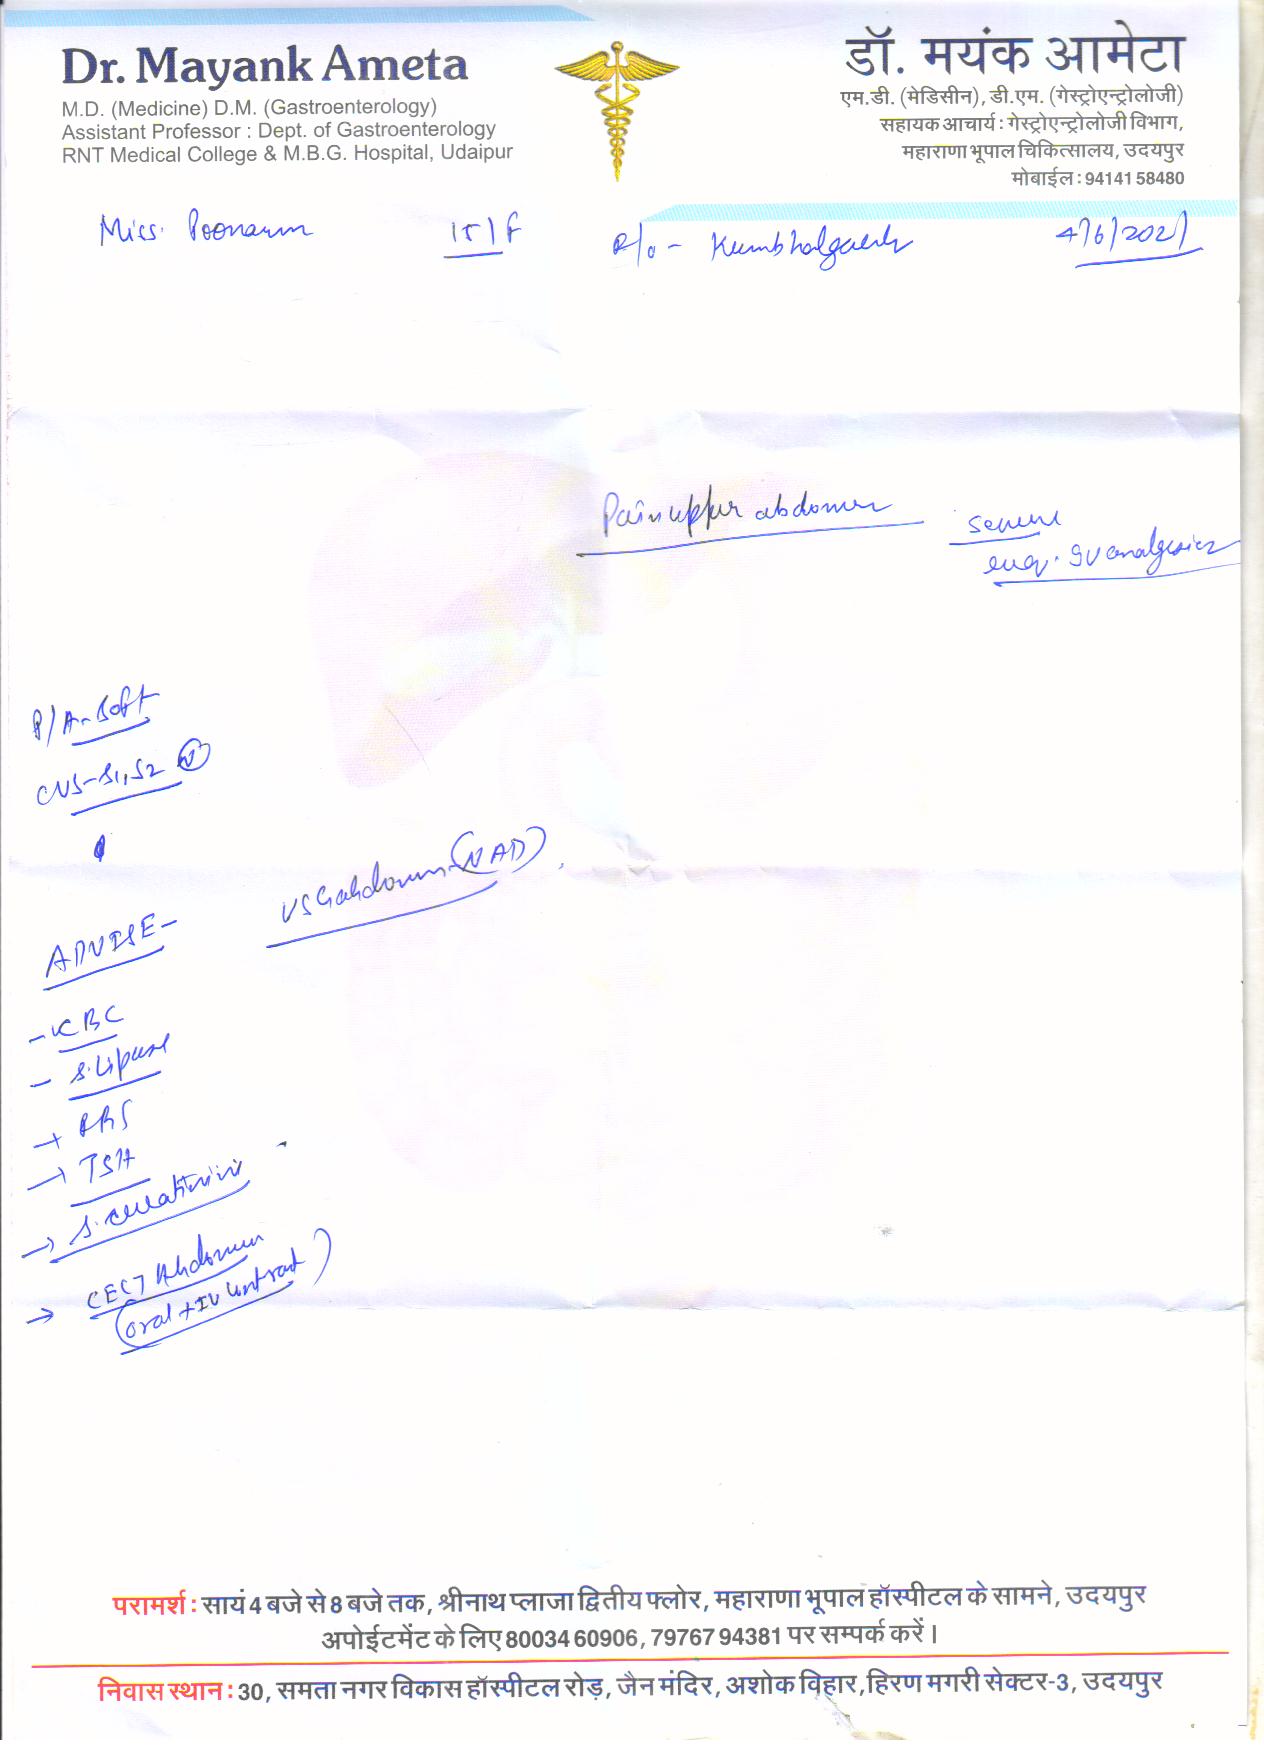 Dr. Mayank Ameta
M.D. (Medicine) D.M. (Gastroenterology)
Assistant Professor : Dept. of Gastroenterology
RNT Medical College & M.B.G. Hospital, Udaipur
डॉ. मयंक आमेटा
एम.डी. (मेडिसीन), डी.एम. (गेस्ट्रोएन्ट्रोलोजी)
सहायक आचार्य : गेस्ट्रोएन्ट्रोलोजी विभाग,
महाराणा भूपाल चिकित्सालय, उदयपुर
मोबाईल : 94141 58480
Miss. Poonam 15/F R/o - Kumbhalgarh 4/6/2021
Pain upper abdomen
severe
req. IV analgesics
P/A - Soft
CVS - S1, S2 N
USG abdomen - (NAD)
ADVISE -
- CBC
- S. Lipase
→ RBS
→ TSH
→ S. creatinine
→ CECT Abdomen
(oral + IV contrast)
परामर्श : सायं 4 बजे से 8 बजे तक, श्रीनाथ प्लाजा द्वितीय फ्लोर, महाराणा भूपाल हॉस्पीटल के सामने, उदयपुर
अपोईटमेंट के लिए 80034 60906, 79767 94381 पर सम्पर्क करें।
निवास स्थान : 30, समता नगर विकास हॉस्पीटल रोड़, जैन मंदिर, अशोक विहार, हिरण मगरी सेक्टर-3, उदयपुर